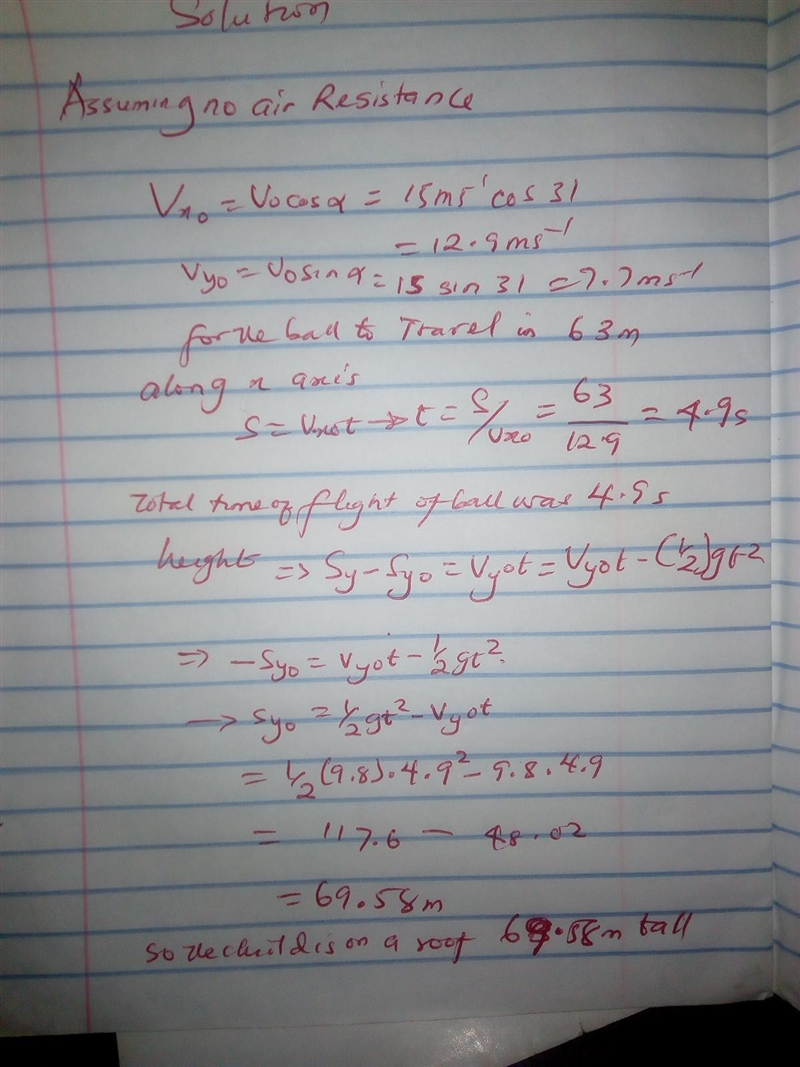 Solution
Assuming no air Resistance
Vx₀ = V₀cosα = 15ms⁻¹ cos 31
= 12.9ms⁻¹
Vy₀ = V₀sinα = 15 sin 31 = 7.7ms⁻¹
for the ball to Travel in 63m
along x axis
S = Vx₀t → t = S/Vx₀ = 63/12.9 = 4.9s
Total time of flight of ball was 4.9s
heights ⇒ Sy - Sy₀ = Vy₀t = Vy₀t - (1/2)gt²
⇒ -Sy₀ = Vy₀t - 1/2gt²
→ Sy₀ = 1/2gt² - Vy₀t
= 1/2(9.8).4.9² - 9.8.4.9
= 117.6 - 48.02
= 69.58m
so the child is on a roof 69.58m tall